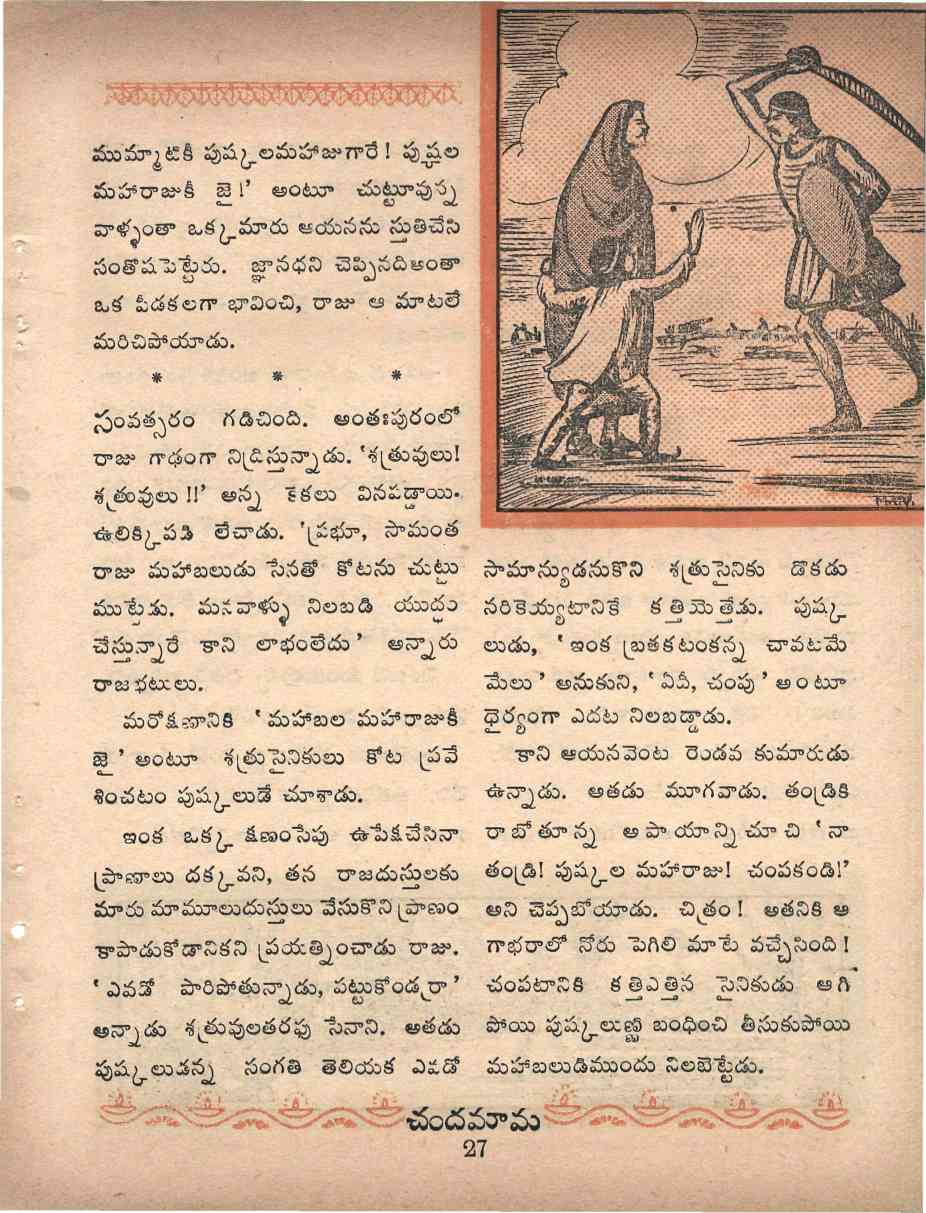 ముమ్మాటికీ పుష్కలమహాజుగారే! పుష్కల
మహారాజుకీ జై!' అంటూ చుట్టూవున్న
వాళ్ళంతా ఒక్కమారు ఆయనను స్తుతిచేసి
సంతోషపెట్టేరు. జ్ఞానధని చెప్పినదిఅంతా
ఒక పీడకలగా భావించి, రాజు ఆ మాటలే
మరిచిపోయాడు.
* * *
సంవత్సరం గడిచింది. అంతఃపురంలో
రాజు గాఢంగా నిద్రిస్తున్నాడు. 'శత్రువులు!
శత్రువులు !!' అన్న కేకలు వినపడ్డాయి.
ఉలిక్కిపడి లేచాడు. 'ప్రభూ, సామంత
రాజు మహాబలుడు సేనతో కోటను చుట్టు
ముట్టేడు. మనవాళ్ళు నిలబడి యుద్ధం
చేస్తున్నారే కాని లాభంలేదు' అన్నారు
రాజభటులు.
మరోక్షణానికి 'మహాబల మహారాజుకీ
జై' అంటూ శత్రుసైనికులు కోట ప్రవే
శించటం పుష్కలుడే చూశాడు.
ఇంక ఒక్క క్షణంసేపు ఉపేక్షచేసినా
ప్రాణాలు దక్కవని, తన రాజదుస్తులకు
మారు మామూలుదుస్తులు వేసుకొని ప్రాణం
కాపాడుకోడానికని ప్రయత్నించాడు రాజు.
'ఎవడో పారిపోతున్నాడు, పట్టుకోండ్రరా'
అన్నాడు శత్రువులతరఫు సేనాని. అతడు
పుష్కలుడన్న సంగతి తెలియక ఎవడో
సామాన్యుడనుకొని శత్రుసైనికు డొకడు
నరికెయ్యటానికే కత్తియెత్తేడు. పుష్క
లుడు, 'ఇంక బ్రతకటంకన్న చావటమే
మేలు' అనుకుని, 'ఏదీ, చంపు' అంటూ
ధైర్యంగా ఎదట నిలబడ్డాడు.
కాని ఆయనవెంట రెండవ కుమారుడు
ఉన్నాడు. అతడు మూగవాడు. తండ్రికి
రాబోతూన్న అపాయాన్నిచూచి 'నా
తండ్రి! పుష్కల మహారాజు! చంపకండి!'
అని చెప్పబోయాడు. చిత్రం! అతనికి ఆ
గాభరాలో నోరు పెగిలి మాటే వచ్చేసింది!
చంపటానికి కత్తిఎత్తిన సైనికుడు ఆగి
పోయి పుష్కలుణ్ణి బంధించి తీసుకుపోయి
మహాబలుడిముందు నిలబెట్టేడు.
చందమామ
27